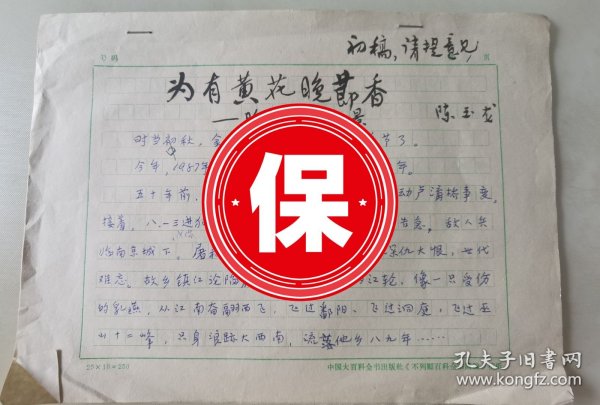 号码
页
初稿，请提意见
为有黄花晚节香
陈玉龙
时当初秋，金 节了。
今年，1987年 年。
五十年前， 动卢沟桥事变。
接着，八·一三进犯 告急。敌人兵
临南京城下， 深仇大恨，世代
难忘。故乡镇江沦陷 江轮，像一只受伤
的乳燕，从江南奋翮西飞，飞过鄱阳、飞过洞庭，飞过巫
山十二峰，只身浪跡大西南，流落他乡八九年……
保
25×10=250
中国大百科全书出版社《不列颠百科全
孔夫子旧书网
www.kongfz.com